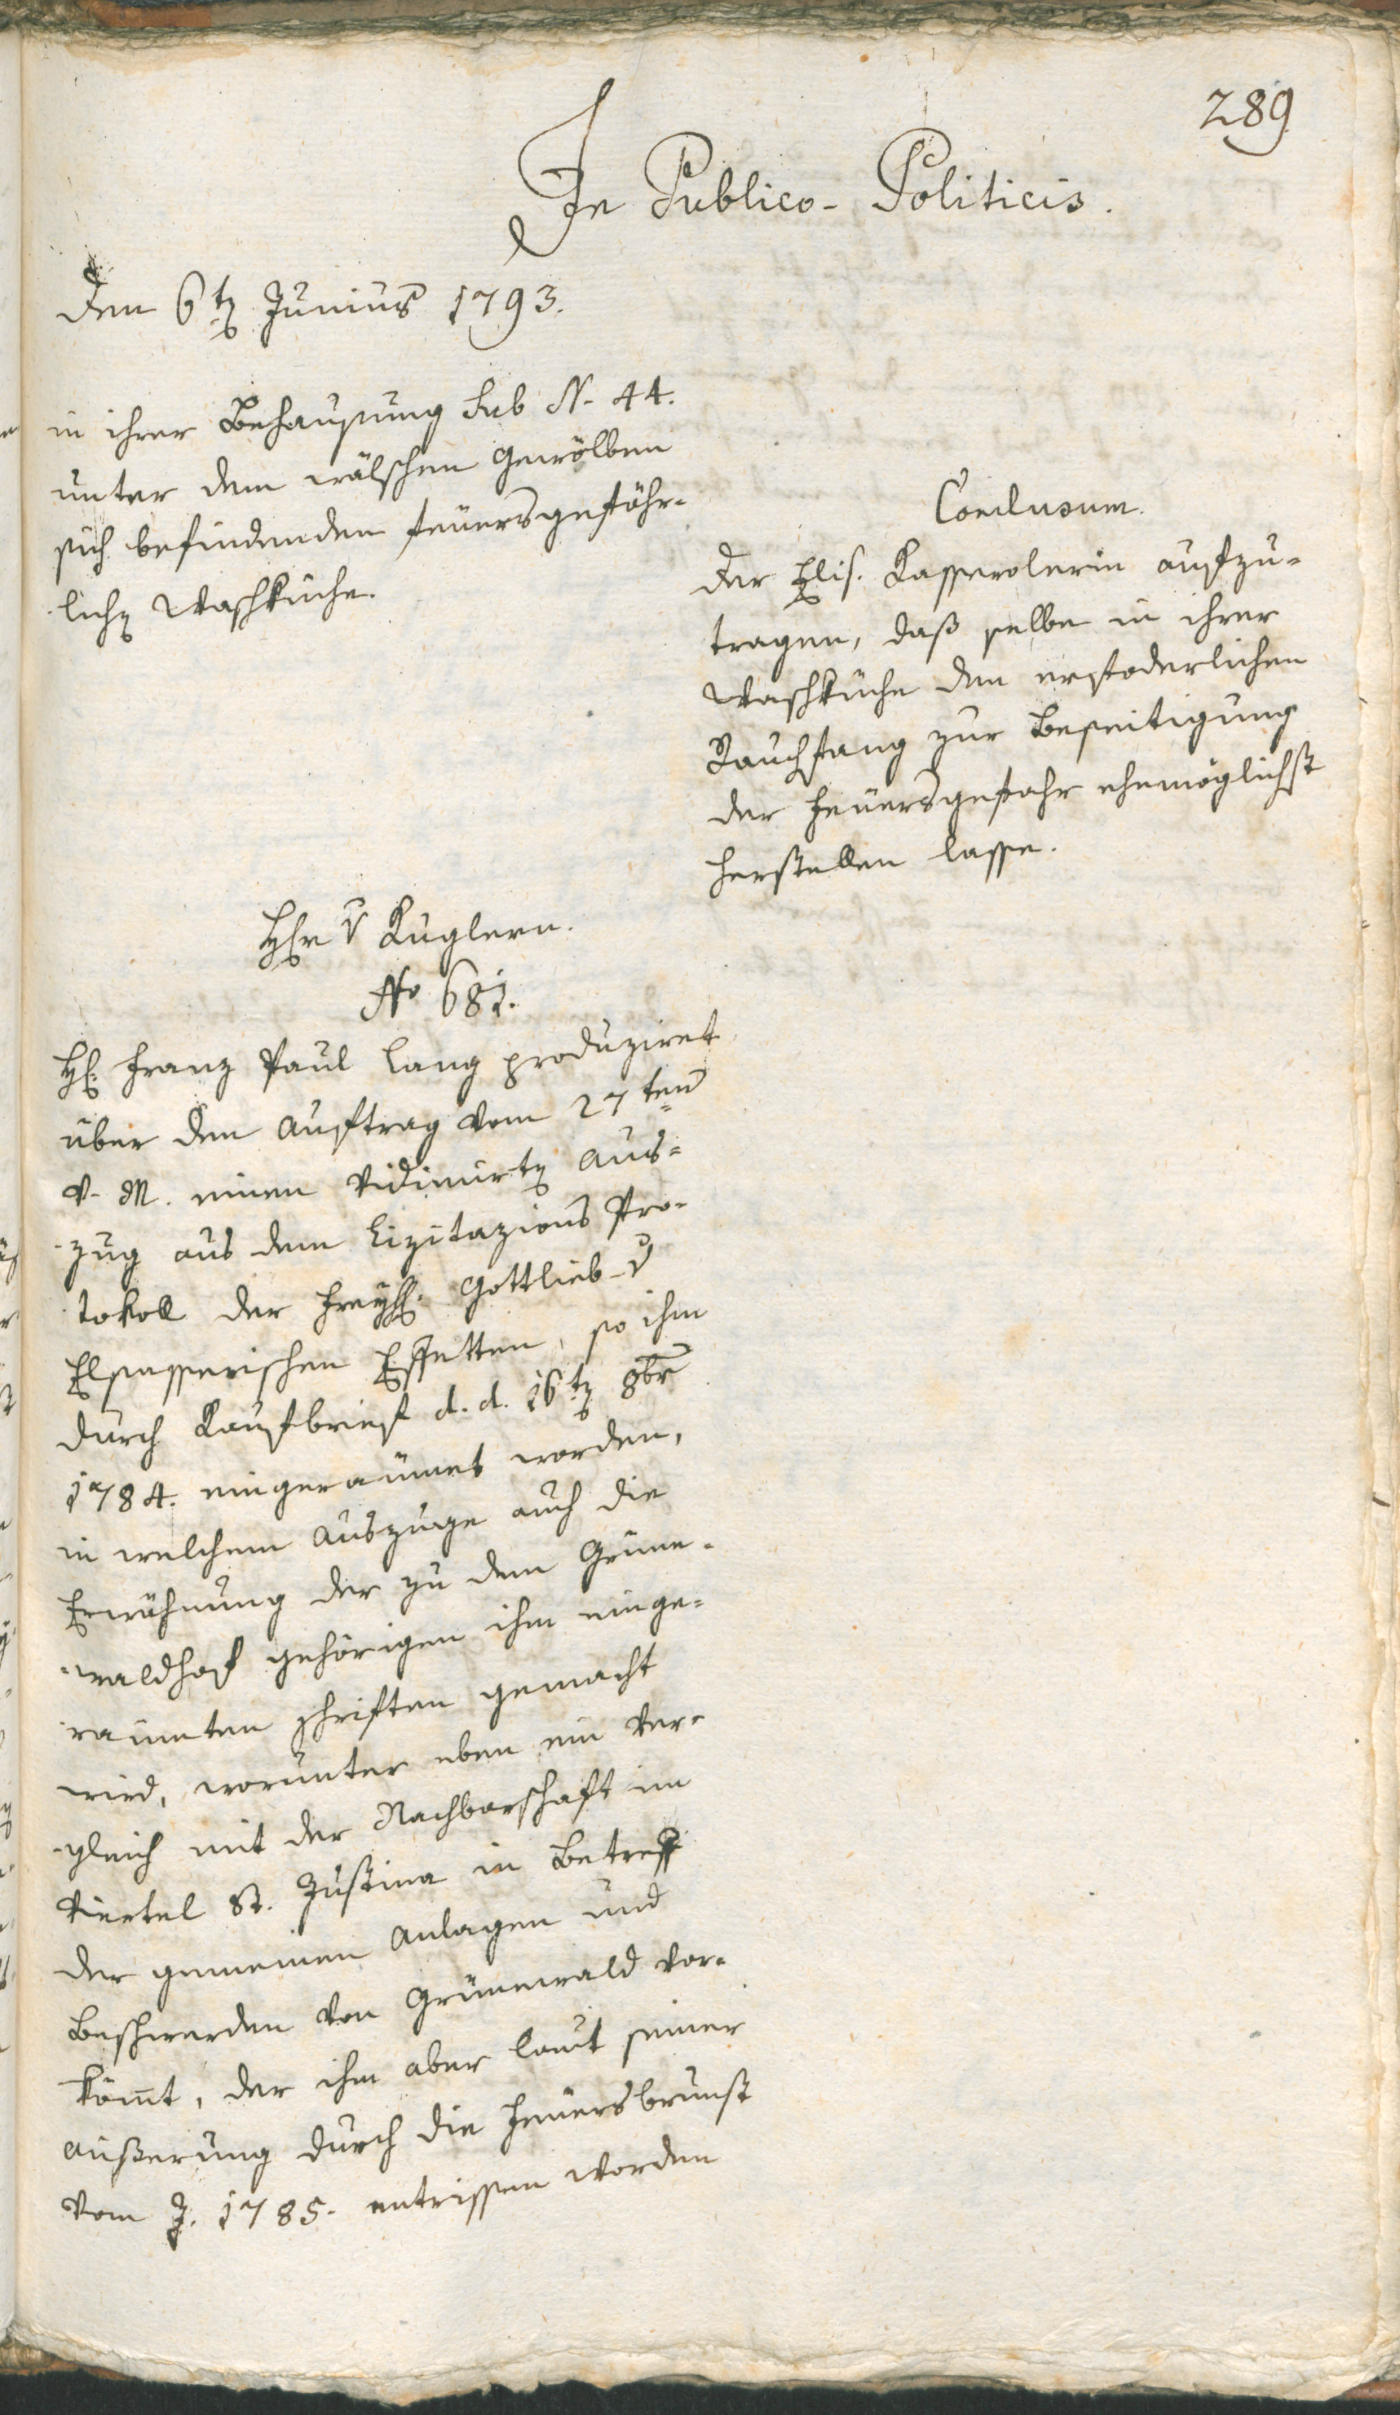 289
In Publico-Politicis.
Den 6t. Junius 1793.
in ihrer Behausung sub N. 44.
unter den wälschen Gewölben
sich befindenden feuersgefähr-
lich. Waschküche.
Conclusum.
Der Elis. Kasserolerin aufzu-
tragen, daß selbe in ihrer
Waschküche den erfoderlichen
Rauchfang zur Beseitigung
der Feuersgefahr ehemöglichst
herstellen lasse.
Hrn v Kuglern.
No 681.
H. Franz Paul Lang produziret
über den Auftrag vom 27ten
v. M. einen vidimirt. Aus-
zug aus dem Lizitazions Pro-
tokoll der Freyh. Gottlieb v
Elsasserischen Effetten, so ihm
durch Kaufbrief d. d. 16t. 8br
1784. eingeraumet worden,
in welchem Auszuge auch die
Erwähnung der zu dem Grüne-
waldhof gehörigen ihm einge-
raumten Schriften gemacht
wird, worunter eben ein Ver-
gleich mit der Nachbarschaft im
Viertel St. Justina in Betreff
der gemeinen Anlagen und
Beschwerden von Grünewald vor-
kömt, der ihm aber laut seiner
Außerung durch die Feuersbrunst
vom J. 1785. entrissen worden